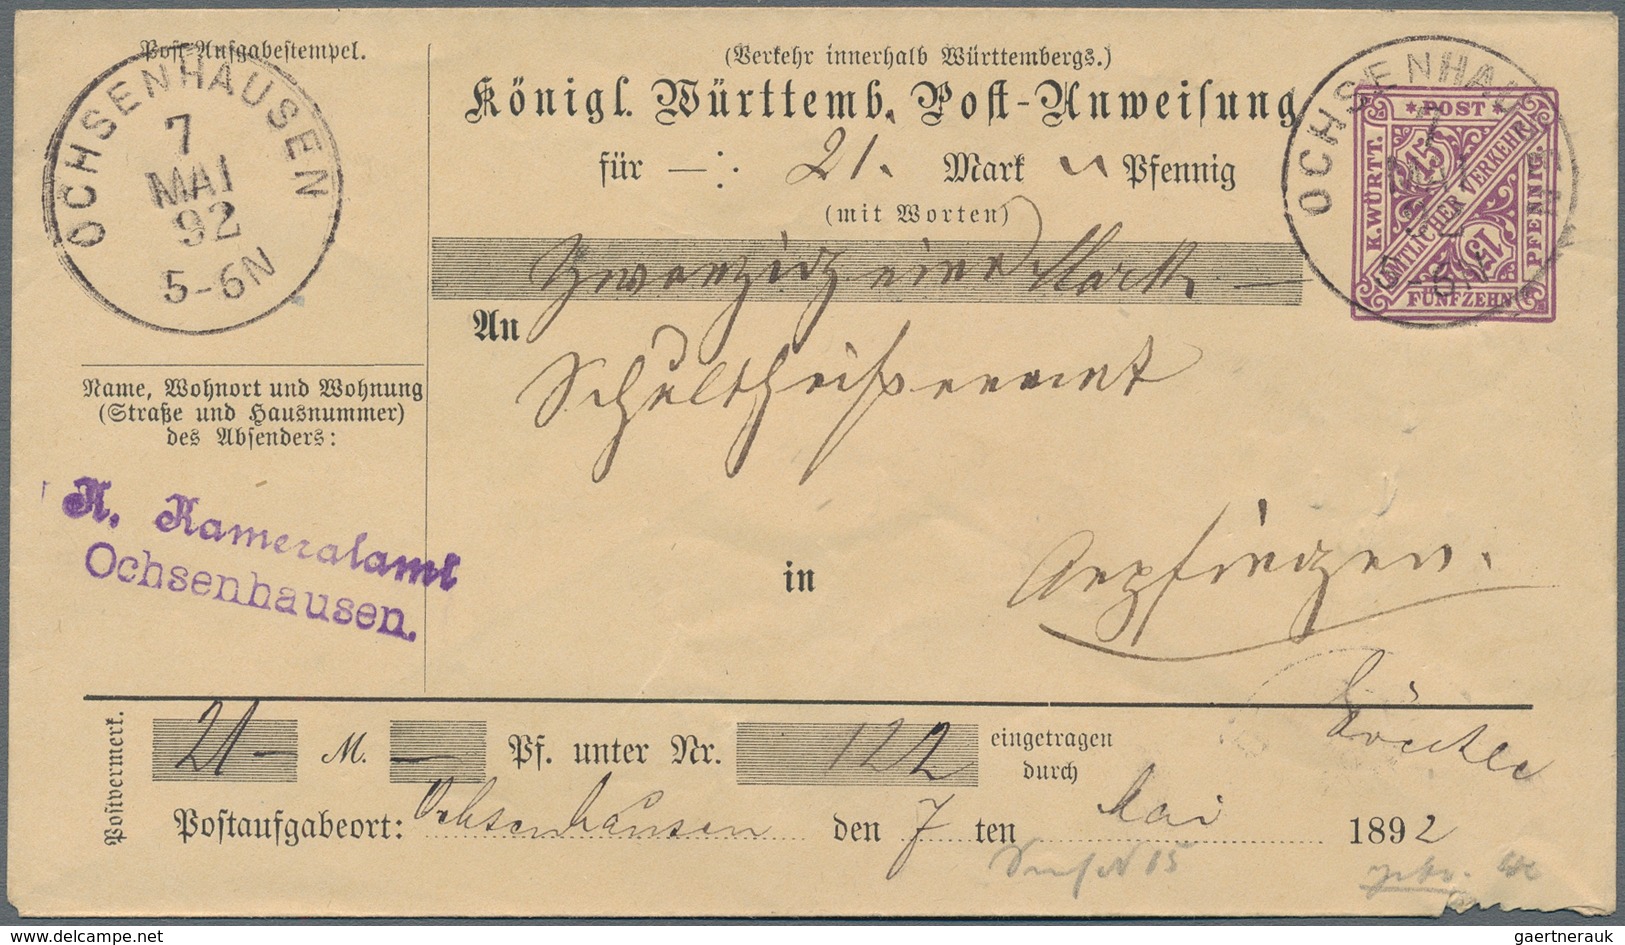 Post-Aufgabestempel.
OCHSENHAUSEN
7
MAI
92
5-6N
(Verkehr innerhalb Württembergs.)
Königl. Württemb. Post-Anweisung
für —: 21. Mark Pfennig
(mit Worten)
Zwanzig eine Mark —
OCHSENHAUSEN
7
* POST *
K. WÜRTT.
AMTLICHER VERKEHR
15
15
PFENNIG.
FÜNFZEHN
An
Schultheißenamt
in
Name, Wohnort und Wohnung
(Straße und Hausnummer)
des Absenders:
K. Kameralamt
Ochsenhausen.
Postvermerk.
21 — M. — Pf. unter Nr. 122 eingetragen
durch
Postaufgabeort: Ochsenhausen den 7 ten Mai 1892
delcampe.net
gaertnerauk